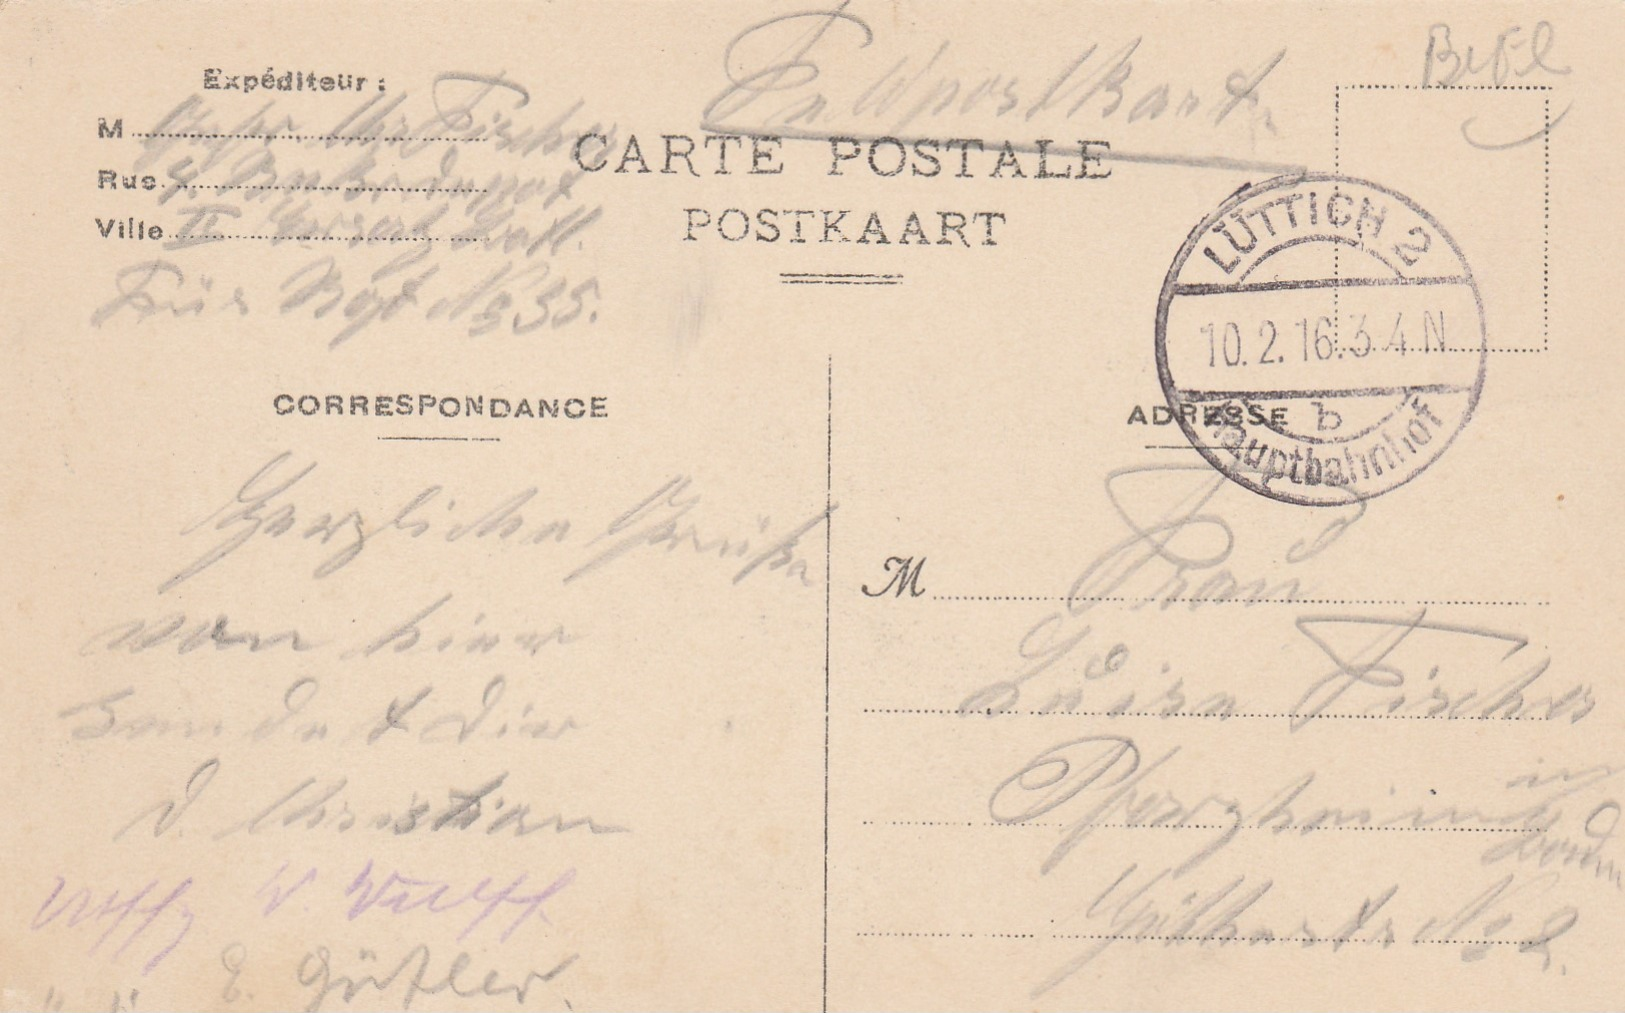 Feldpostkarte
Befl
Expéditeur :
M Gefr. Chr Fischer
Rue 4. Rekr. depot
Ville II Ersatz Batl.
Füs Regt No 35.
CARTE POSTALE
POSTKAART
LÜTTICH 2
10.2.16. 3-4 N
b
Hauptbahnhof
CORRESPONDANCE
Herzliche Grüße
von hier
sendet Dir
d. Christian
Uffz W. Wulff
E. Gürtler.
ADRESSE
M Frau
Luise Fischer
Pforzheim in
Baden
Güterstr No 2.